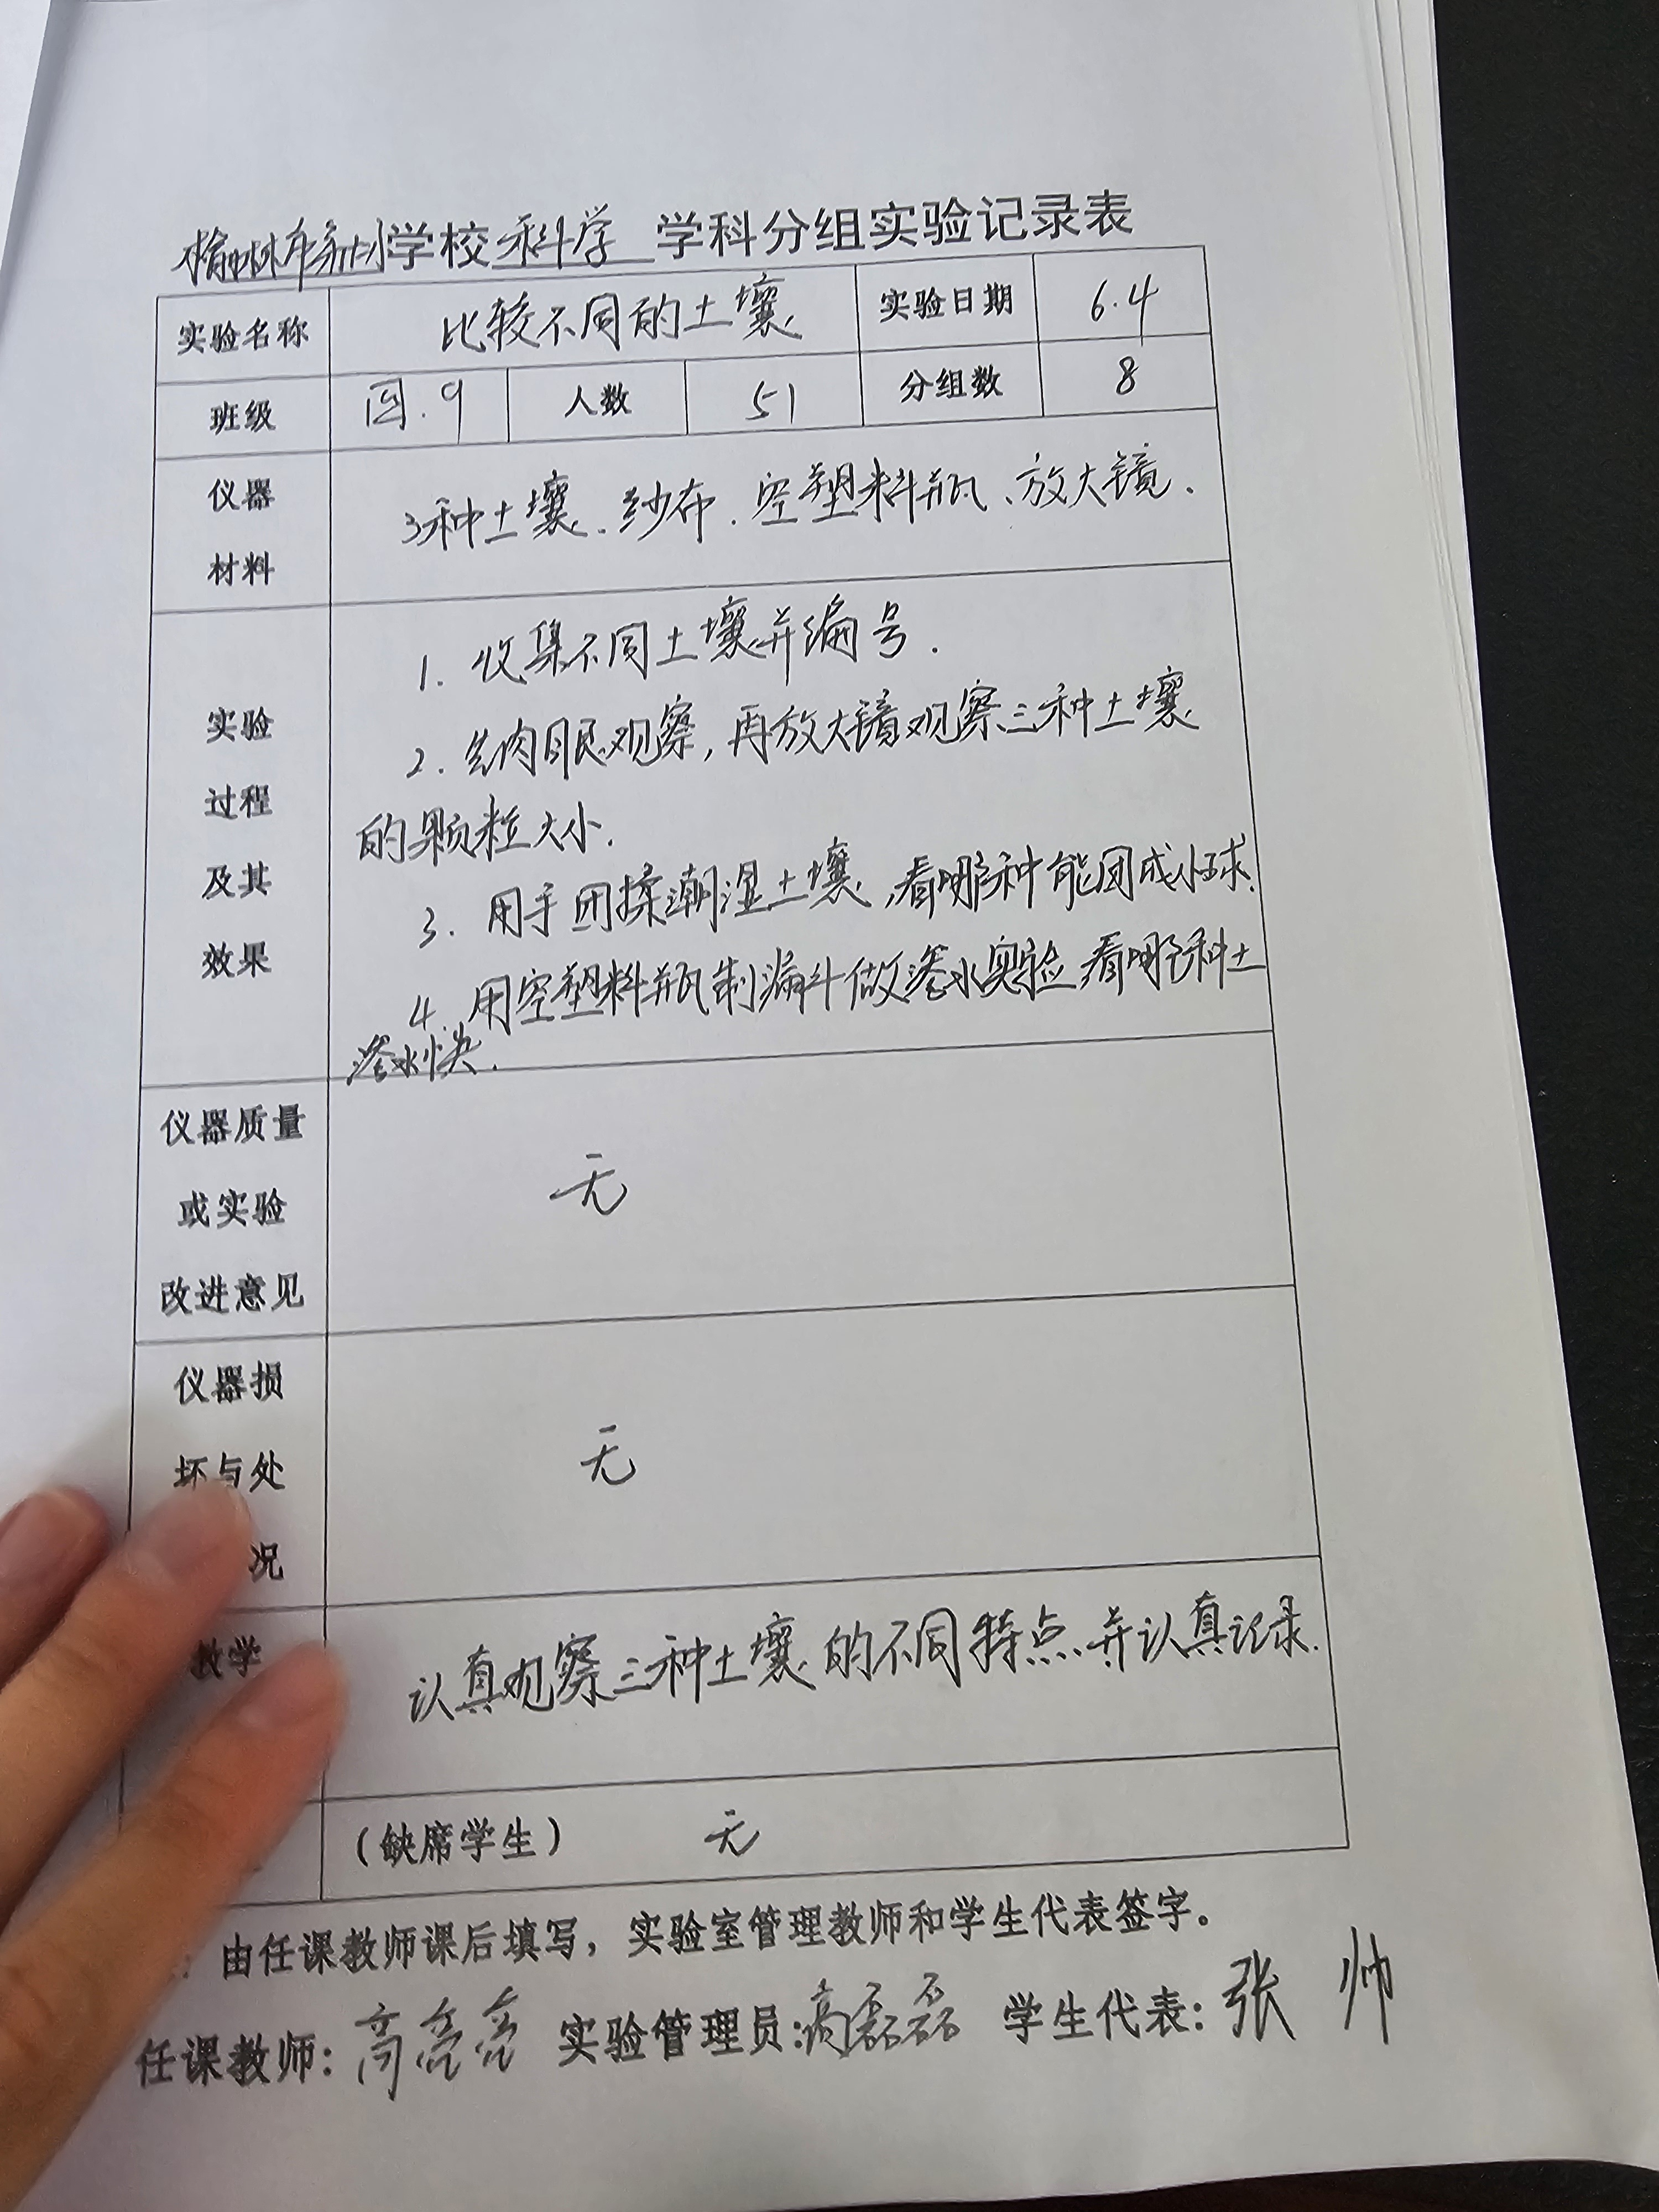 榆林市 小学校 科学 学科分组实验记录表
实验名称 比较不同的土壤 实验日期 6.4
班级 四.9 人数 51 分组数 8
仪器
材料
3种土壤、纱布、空塑料瓶、放大镜.
实验
过程
及其
效果
1. 收集不同土壤并编号.
2. 先肉眼观察,再放大镜观察三种土壤
的颗粒大小.
3. 用手团揉潮湿土壤,看哪种能团成小球.
4. 用空塑料瓶制漏斗做渗水实验看哪种土
渗水快.
仪器质量
或实验
改进意见
无
仪器损
坏与处
况
无
教学
认真观察三种土壤的不同特点并认真记录.
(缺席学生) 无
由任课教师课后填写，实验室管理教师和学生代表签字。
任课教师: 高亮亮 实验管理员: 高磊磊 学生代表: 张帅